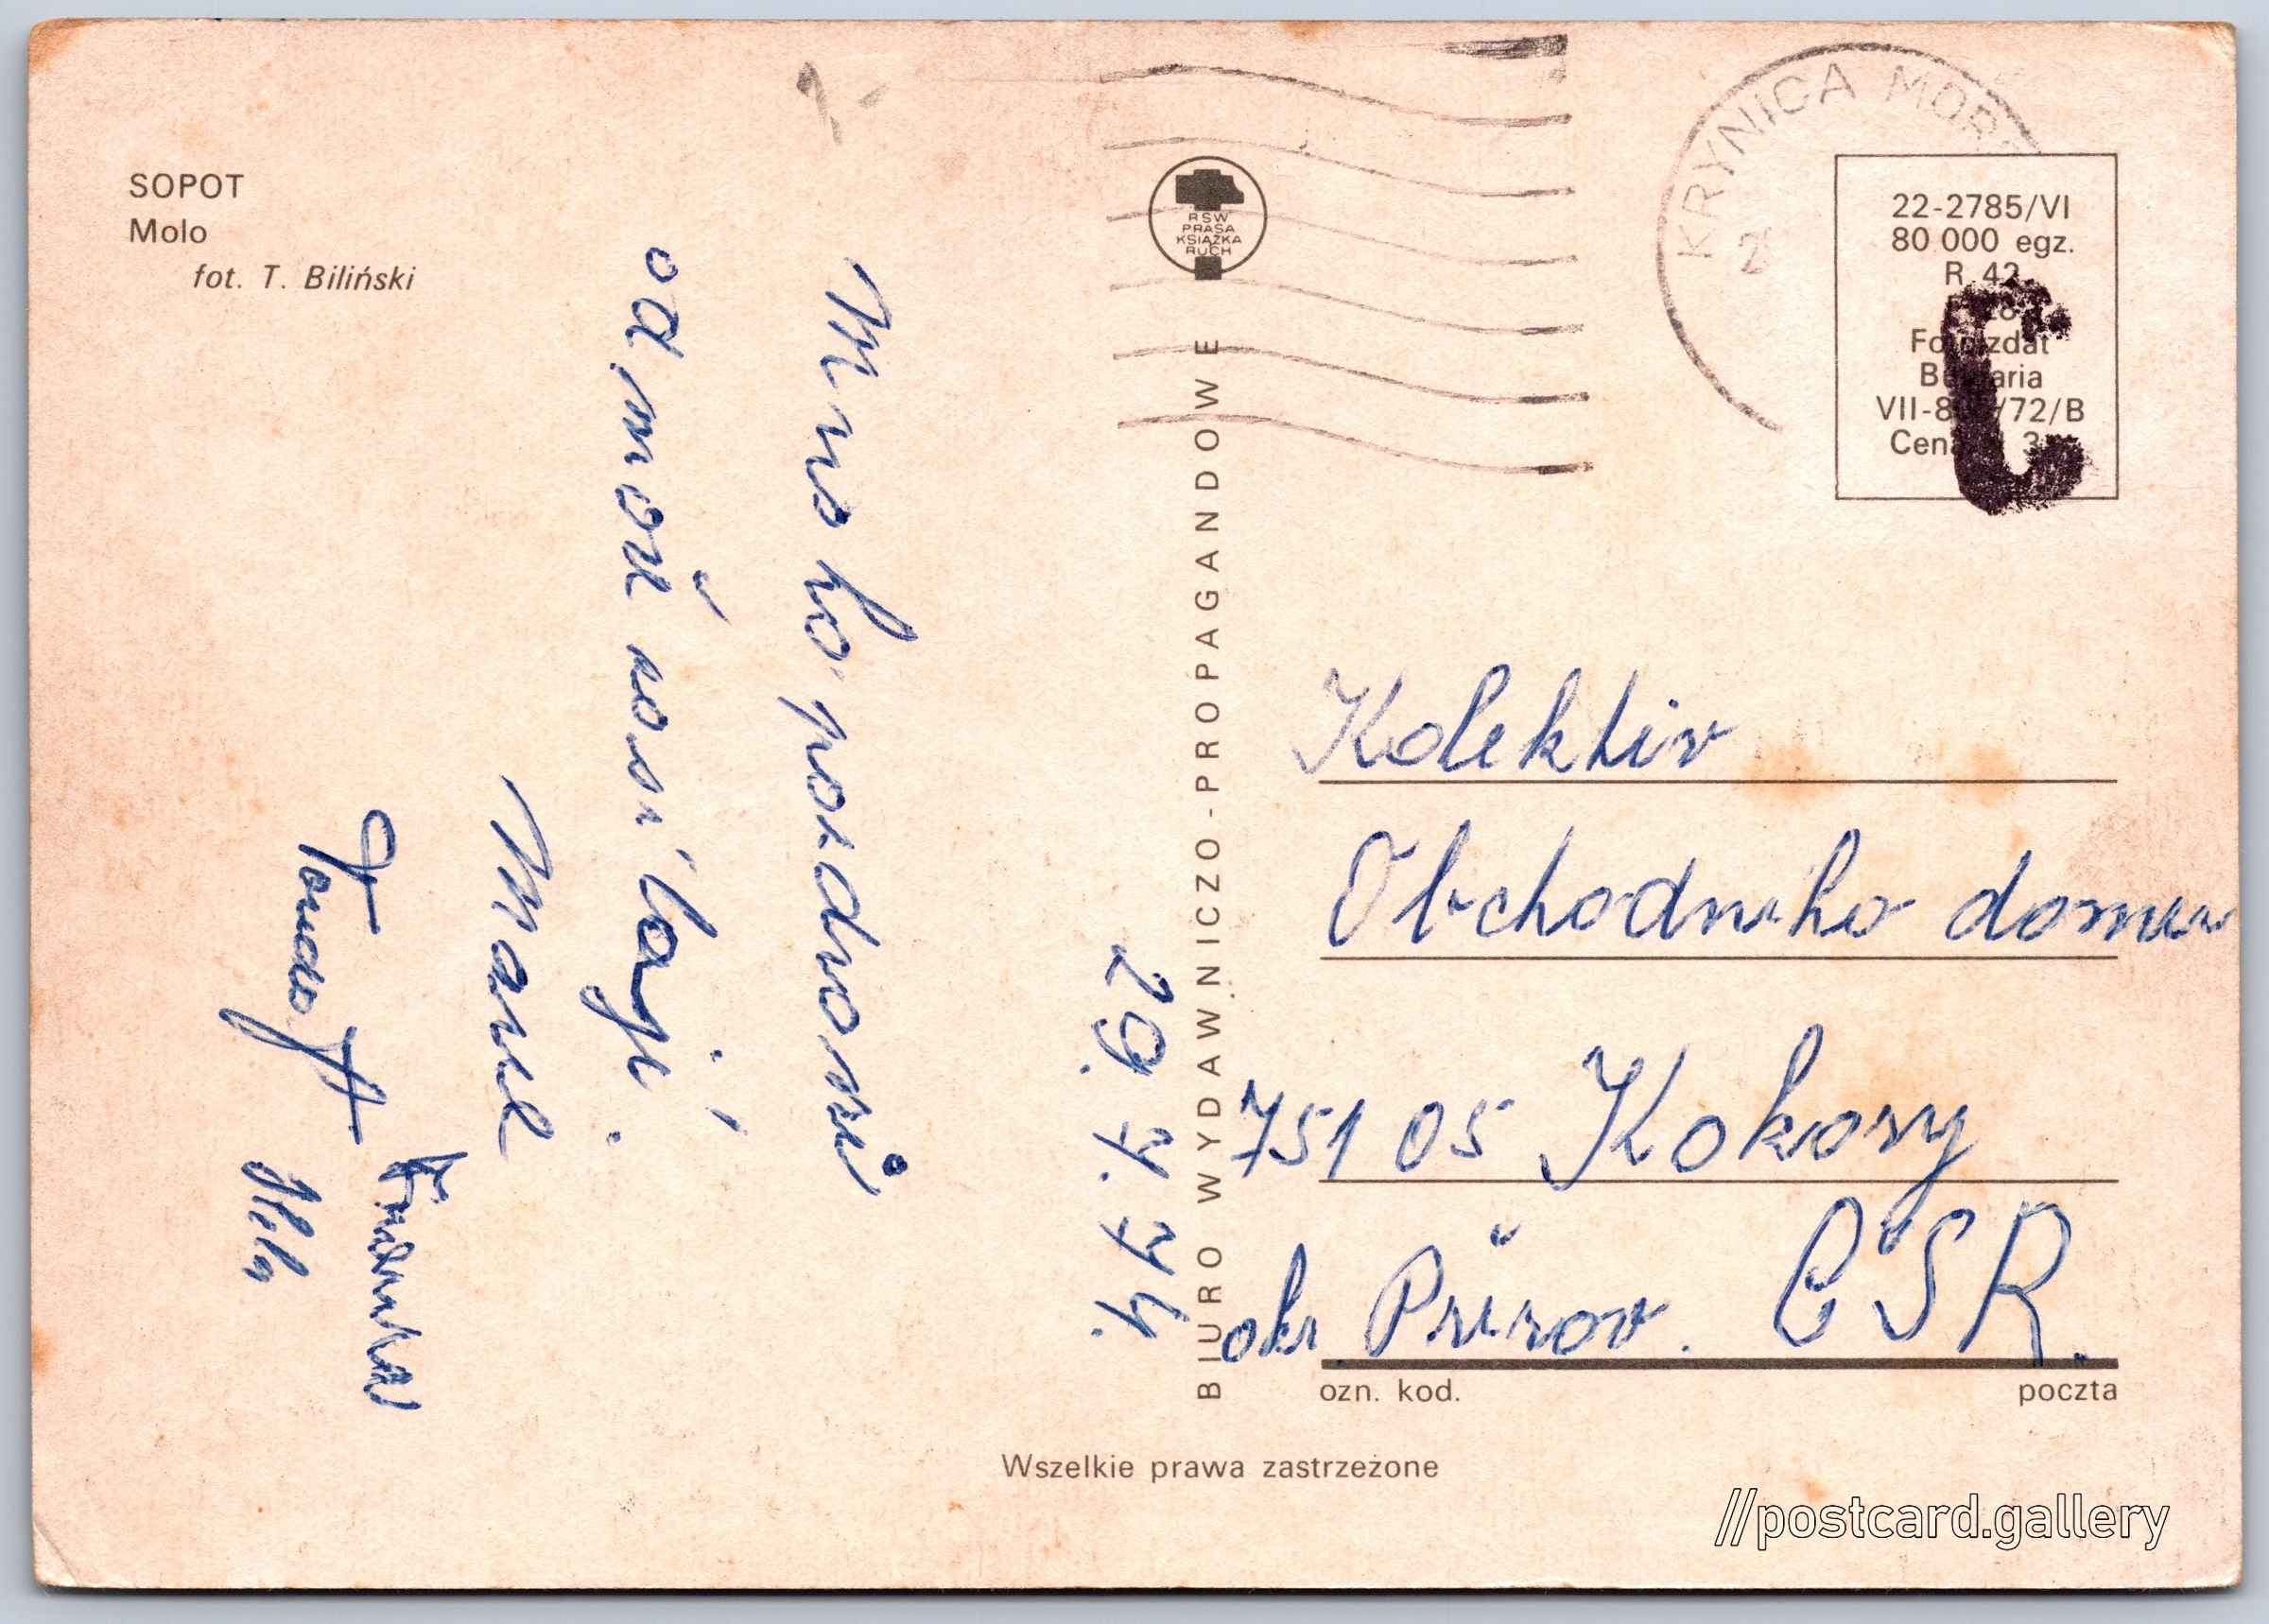 SOPOT
Molo
fot. T. Biliński
Mnoho pozdravů
od moře zasílají.
29. 7. 74.
RSW
PRASA
KSIĄŻKA
RUCH
BIURO WYDAWNICZO-PROPAGANDOWE
KRYNICA MOR
22-2785/VI
80 000 egz.
R 42
VII-8 /72/B
Cena
Kolektiv
Obchodniho domu
751 05 Kokory
okr. Přerov. ČSR.
ozn. kod.
poczta
Wszelkie prawa zastrzeżone
//postcard.gallery